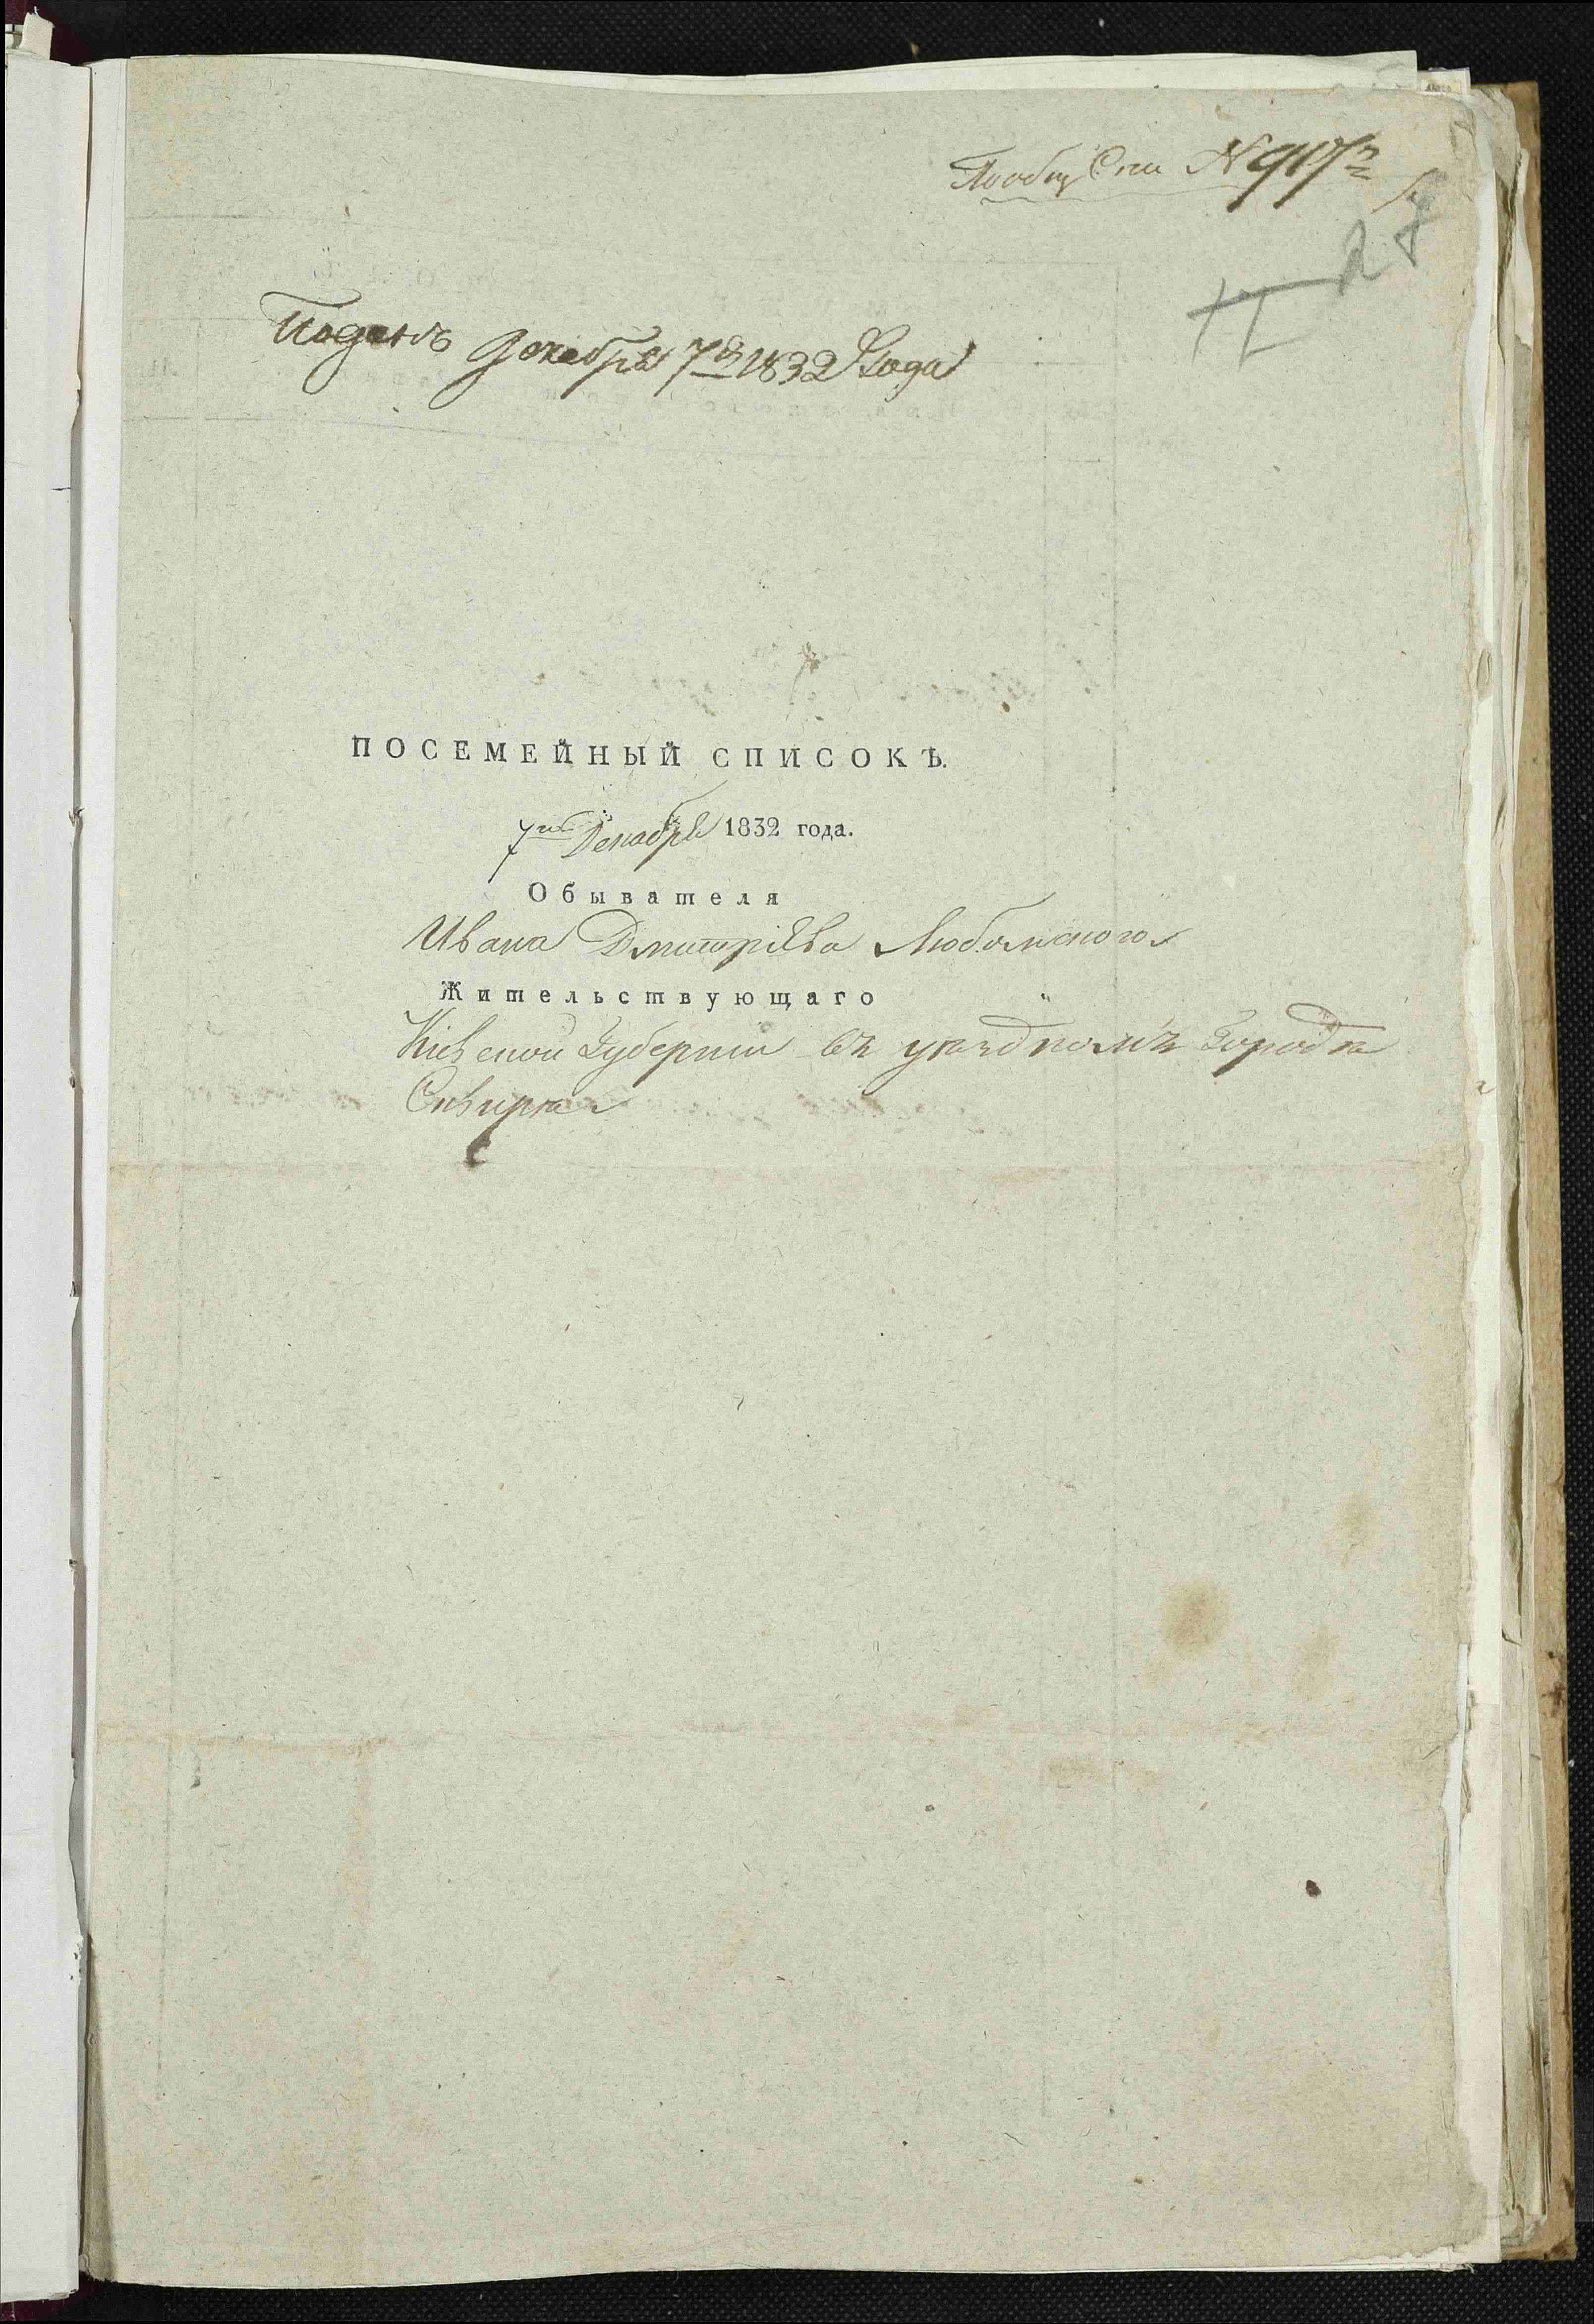 Пообщ Спи N
Поданъ Декабря 7 д 1832 Года
ПОСЕМЕЙНЫЙ СПИСОКЪ.
7го Декабря 1832 года.
Обывателя
Ивана Дмитріева Любомского
Жительствующаго
Кіевской Губерніи въ уездномъ Городе
Сквире